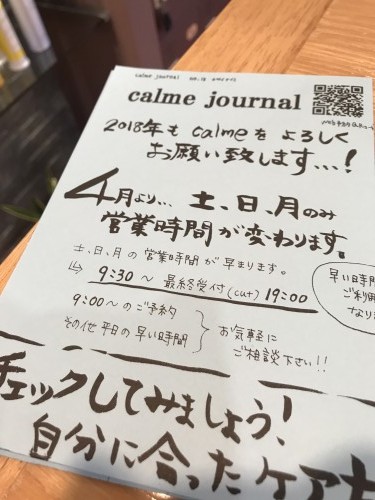 calme journal
calme journal
2018年も calmeを よろしく
お願い致します...!
4月より... 土、日、月のみ
営業時間が変わります。
土、日、月の営業時間が早まります。
↳ 9:30 ～ 最終受付(cut) 19:00
早い時間
ご利用
なりま
9:00～のご予約
その他 平日の早い時間
お気軽に
ご相談下さい!!
チェックしてみましょう!
自分に合ったケア